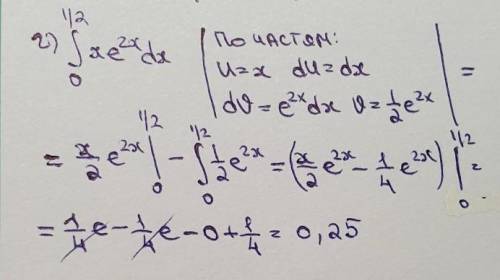 2) ∫₀^{1/2} xe^{2x}dx | По частям: u=x du=dx dϑ=e^{2x}dx ϑ=½e^{2x} | =
= x/2 e^{2x} |₀^{1/2} - ∫₀^{1/2} ½e^{2x} = (x/2 e^{2x} - ¼e^{2x}) |₀^{1/2} =
= ¼e - ¼e - 0 + ¼ = 0,25